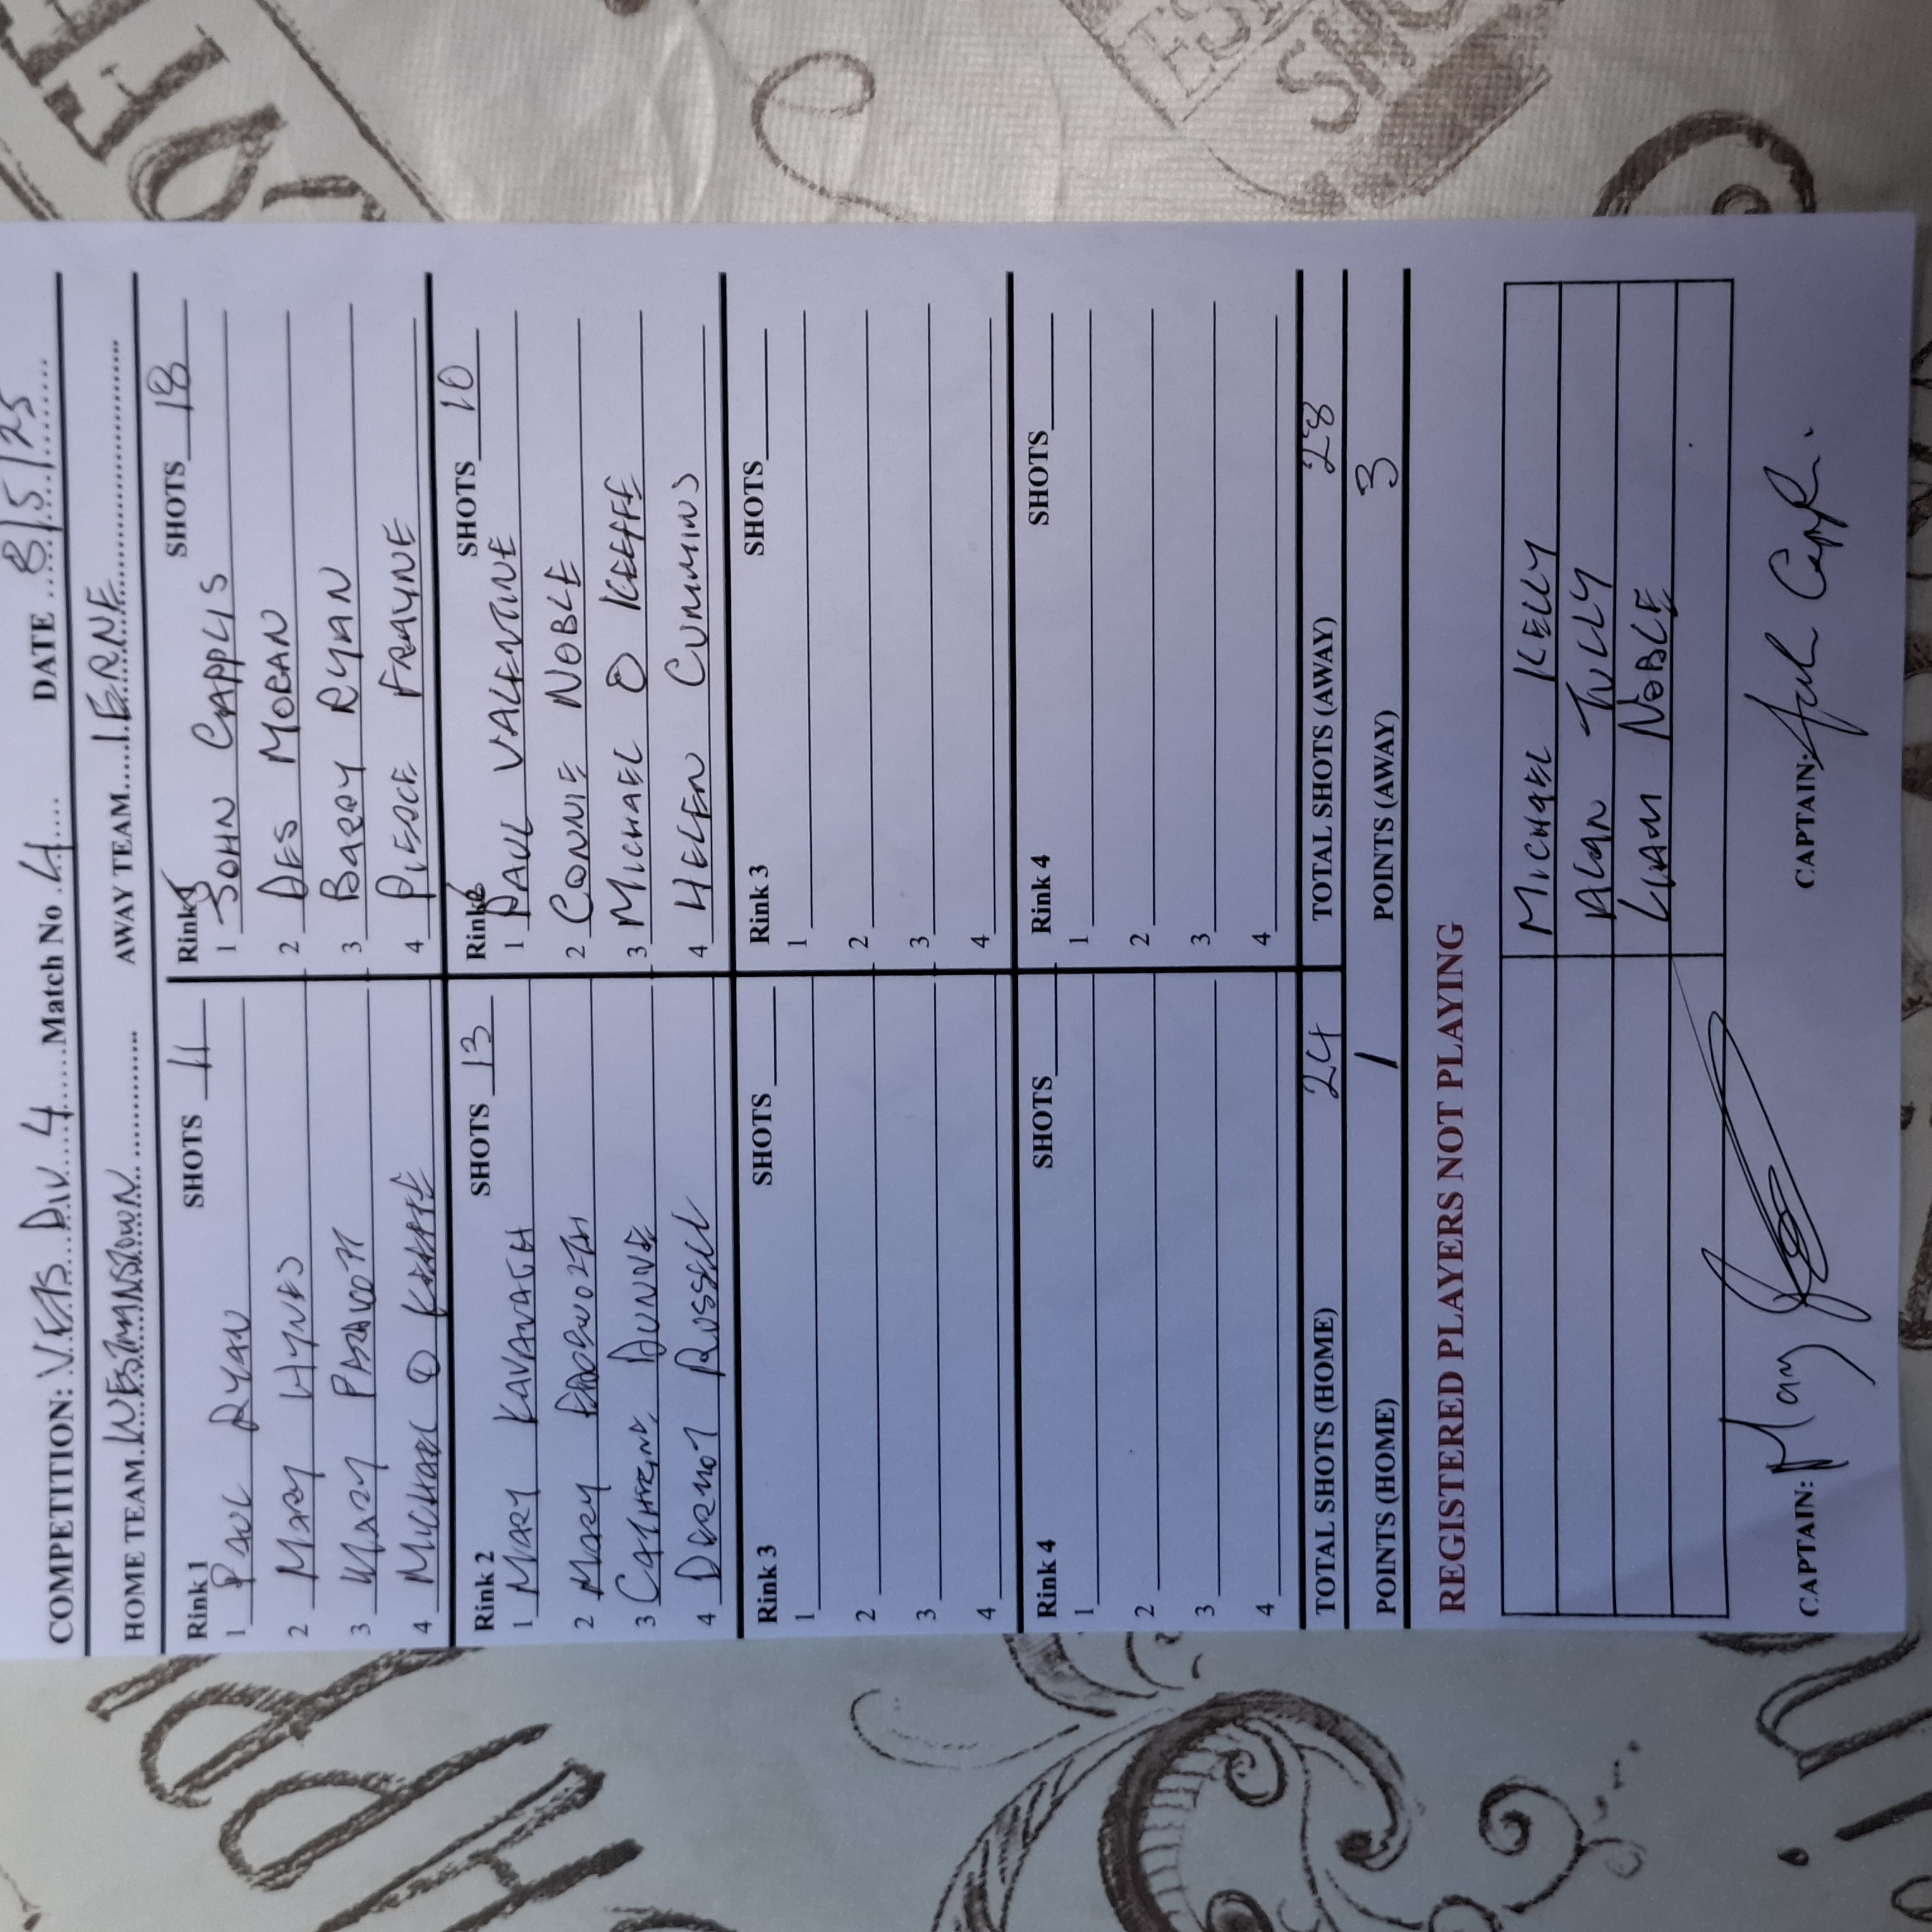 COMPETITION: V.E.T.S. DIV. 4 Match No. 4 DATE 8/5/25
HOME TEAM. WESTMANSTOWN AWAY TEAM. IERNE
Rink 1 SHOTS 11 Rink SHOTS 18
1 PAUL RYAN 1 JOHN CAPPLIS
2 MARY HYNES 2 DES MORAN
3 MARY 3 BARRY RYAN
4 MICHAEL O KEEFFE 4 PIERCE FRAYNE
Rink 2 SHOTS 13 Rink SHOTS 10
1 MARY KAVANAGH 1 PAUL VALENTINE
2 MARY 2 CONNIE NOBLE
3 CATHERINE DUNNE 3 MICHAEL O KEEFFE
4 DERMOT RUSSELL 4 HELEN CUMMINS
Rink 3 SHOTS Rink 3 SHOTS
1 1
2 2
3 3
4 4
Rink 4 SHOTS Rink 4 SHOTS
1 1
2 2
3 3
4 4
TOTAL SHOTS (HOME) 24 TOTAL SHOTS (AWAY) 28
POINTS (HOME) 1 POINTS (AWAY) 3
REGISTERED PLAYERS NOT PLAYING
MICHAEL KELLY
ALAN TULLY
LIAM NOBLE
CAPTAIN: Mary CAPTAIN:
ESP
SHO